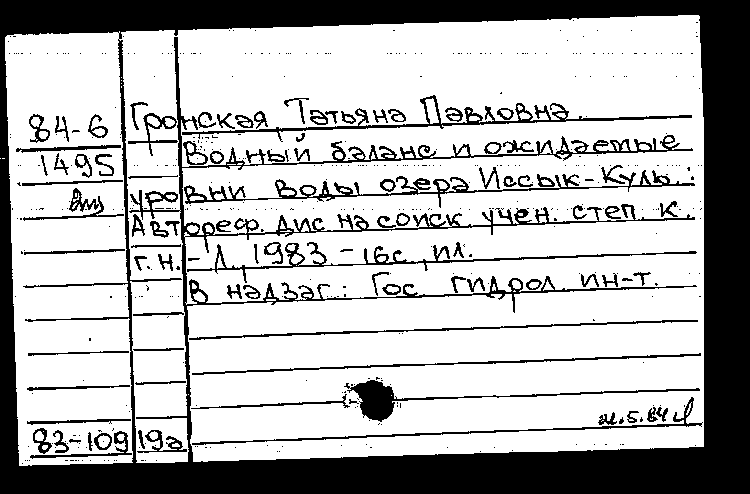 84-6 Гронская, Татьяна Павловна.
1495 Водный баланс и ожидаемые
уровни воды озера Иссык-Куль.:
Автореф. дис на соиск. учен. степ. к.
г.н. - Л., 1983 - 16с., ил.
В надзаг.: Гос. гидрол. ин-т.
83-109 19а